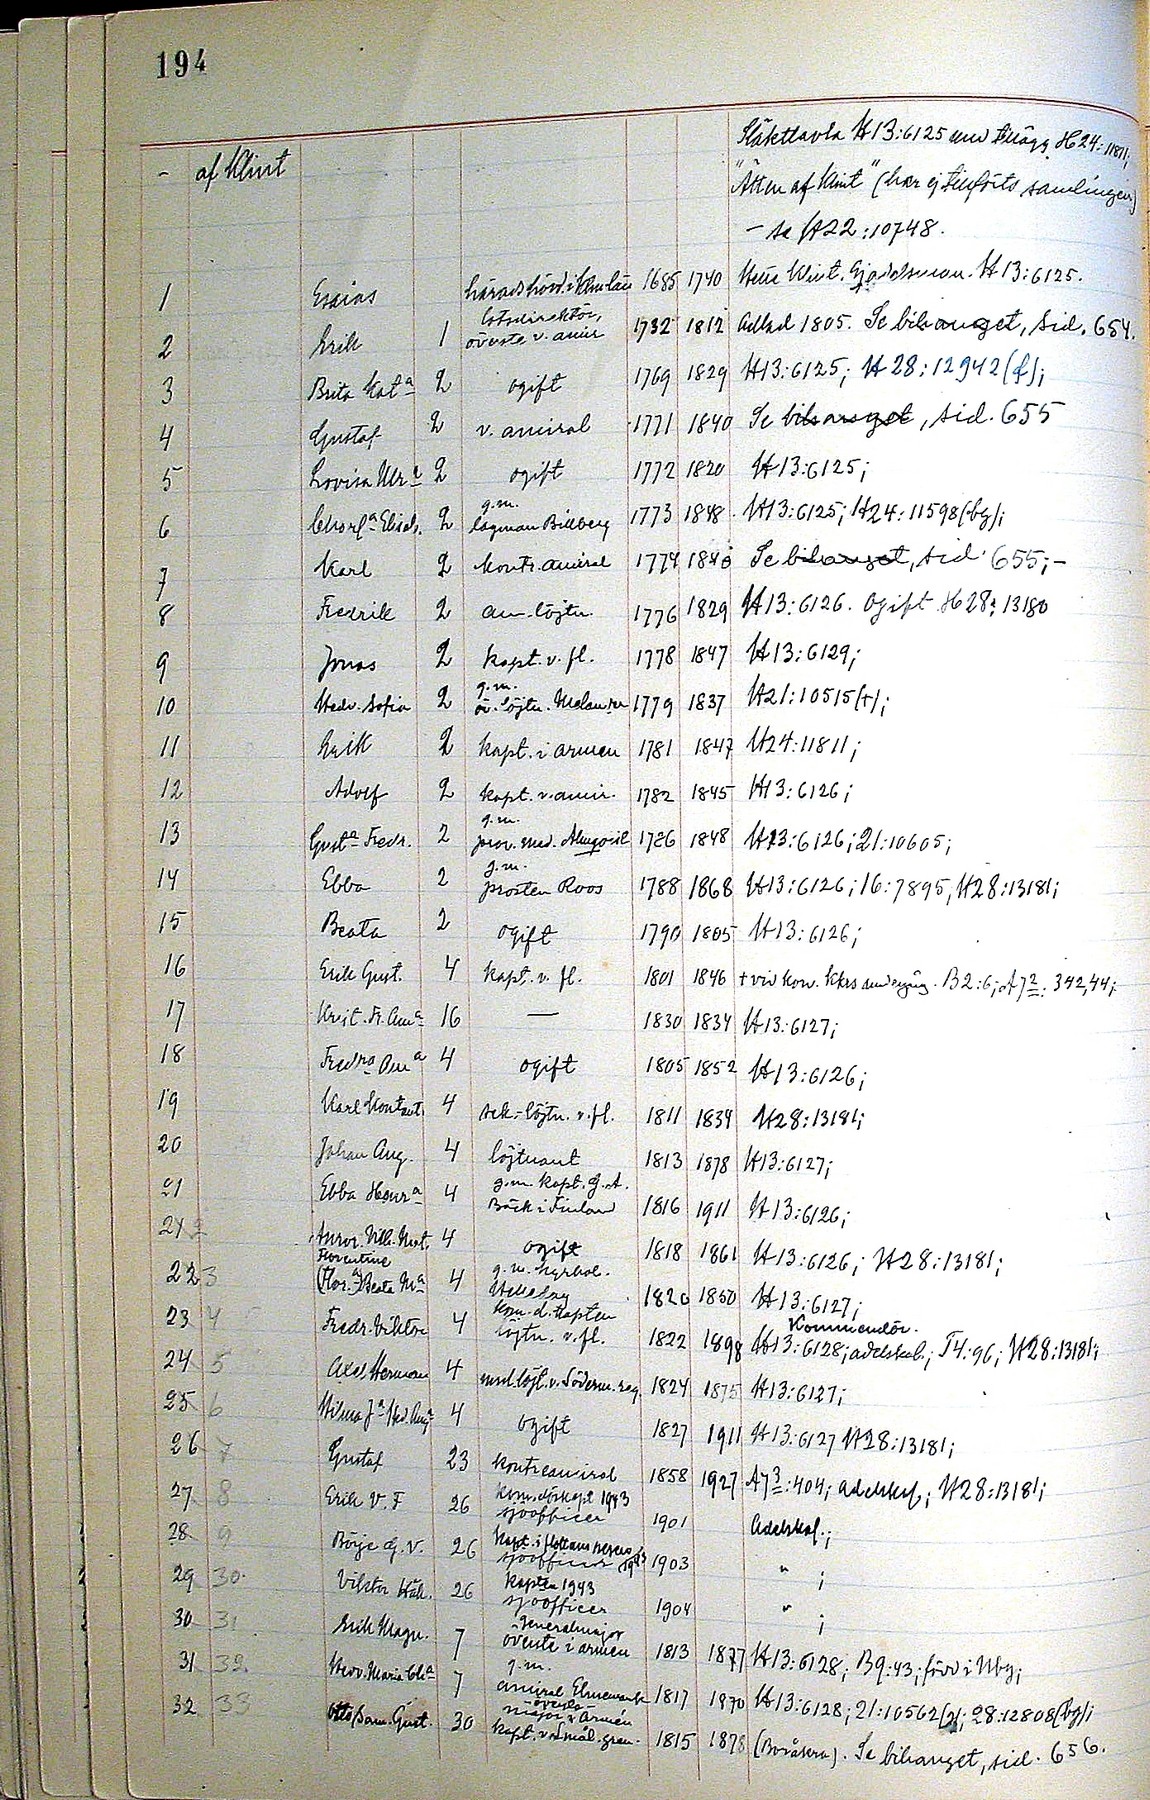 194
Släkttavla H13:6125 med tillägg H24:11811;
- af Klint
"Ätten af Klint" (har ej tillförts samlingen)
- se H22:10748.
1 Esaias häradshövd. i 1685 1740 Hette Klint. H13:6125.
lotsdirektör,
2 Erik 1 överste v. amir 1732 1812 Adlad 1805. Se bihanget, sid. 654.
3 Brita Kat.a 2 ogift 1769 1829 H13:6125; H28:12942(f);
4 Gustaf 2 v. amiral 1771 1840 Se bihanget, sid. 655
5 Lovisa Ulr.a 2 ogift 1772 1820 H13:6125;
g.m.
6 Charl.a Elisab. 2 lagman Billberg 1773 1848 H13:6125; H24:11598(bg);
7 Karl 2 kontr.amiral 1774 1840 Se bihanget, sid. 655;-
8 Fredrik 2 am-löjtn. 1776 1829 H13:6126. Ogift H28:13180
9 Jonas 2 kapt. v. fl. 1778 1847 H13:6129;
g.m.
10 Hedv. Sofia 2 öv.löjtn. 1779 1837 H21:10515(+);
11 Erik 2 kapt. i armén 1781 1847 H24:11811;
12 Adolf 2 kapt. v. amir. 1782 1845 H13:6126;
g.m.
13 Gust.a Fredr. 2 prov. med. Almqvist 1786 1848 H13:6126; 21:10605;
g.m.
14 Ebba 2 prosten Roos 1788 1868 H13:6126; 16:7895; H28:13181;
15 Beata 2 ogift 1790 1805 H13:6126;
16 Erik Gust. 4 kapt. v. fl. 1801 1846 + vid kon. B2:6; A72: 342,44;
17 Krist. Fr. Am.a 16 — 1830 1834 H13:6127;
18 Fredr.a Am.a 4 ogift 1805 1852 H13:6126;
19 Karl Konstant. 4 sek-löjtn. v. fl. 1811 1834 H28:13181;
20 Johan Aug. 4 löjtnant 1813 1878 H13:6127;
g.m. kapt. G.A.
21 Ebba Henr.a 4 Bäck i Finland 1816 1911 H13:6126;
21 2 Auror. Vilh. Mat. 4 ogift 1818 1861 H13:6126; H28:13181;
Florentine g.m. kyrkoh.
22 3 (Flor.a) Beata M.a 4 1820 1850 H13:6127;
kom. d. kapten Kommendör.
23 4 Fredr. Viktor 4 löjtn. v. fl. 1822 1898 H13:6128; adelskal.; T4:96; H28:13181;
24 5 Axel Herman 4 und.löjt. v. Söderm. reg. 1824 1875 H13:6127;
25 6 Hilma J.a Hed. Aug.a 4 ogift 1827 1911 H13:6127 H28:13181;
26 7 Gustaf 23 kontreamiral 1858 1927 A73:404; adelskal; H28:13181;
kom.dörkapt 1943
27 8 Erik V. F 26 sjöofficer 1901 Adelskal.;
kapt. i flottans reserv
28 9 Börje G. V. 26 sjöofficer 1943 1903 " ;
kapten 1943
29 30 Viktor Håk. 26 sjöofficer 1904 " ;
Generalmajor
30 31 Erik Magn. 7 överste i armén 1813 1877 H13:6128; B9:43; född i Nbg;
g.m.
31 32. Hedv. Maria Ch.a 7 amiral 1817 1870 H13:6128; 21:10562; 28:12808(bg);
överste
major v. armén
32 33 Otto Sam. Gust. 30 kapt. v. Smål. gren. 1815 1878 Se bihanget, sid. 656.